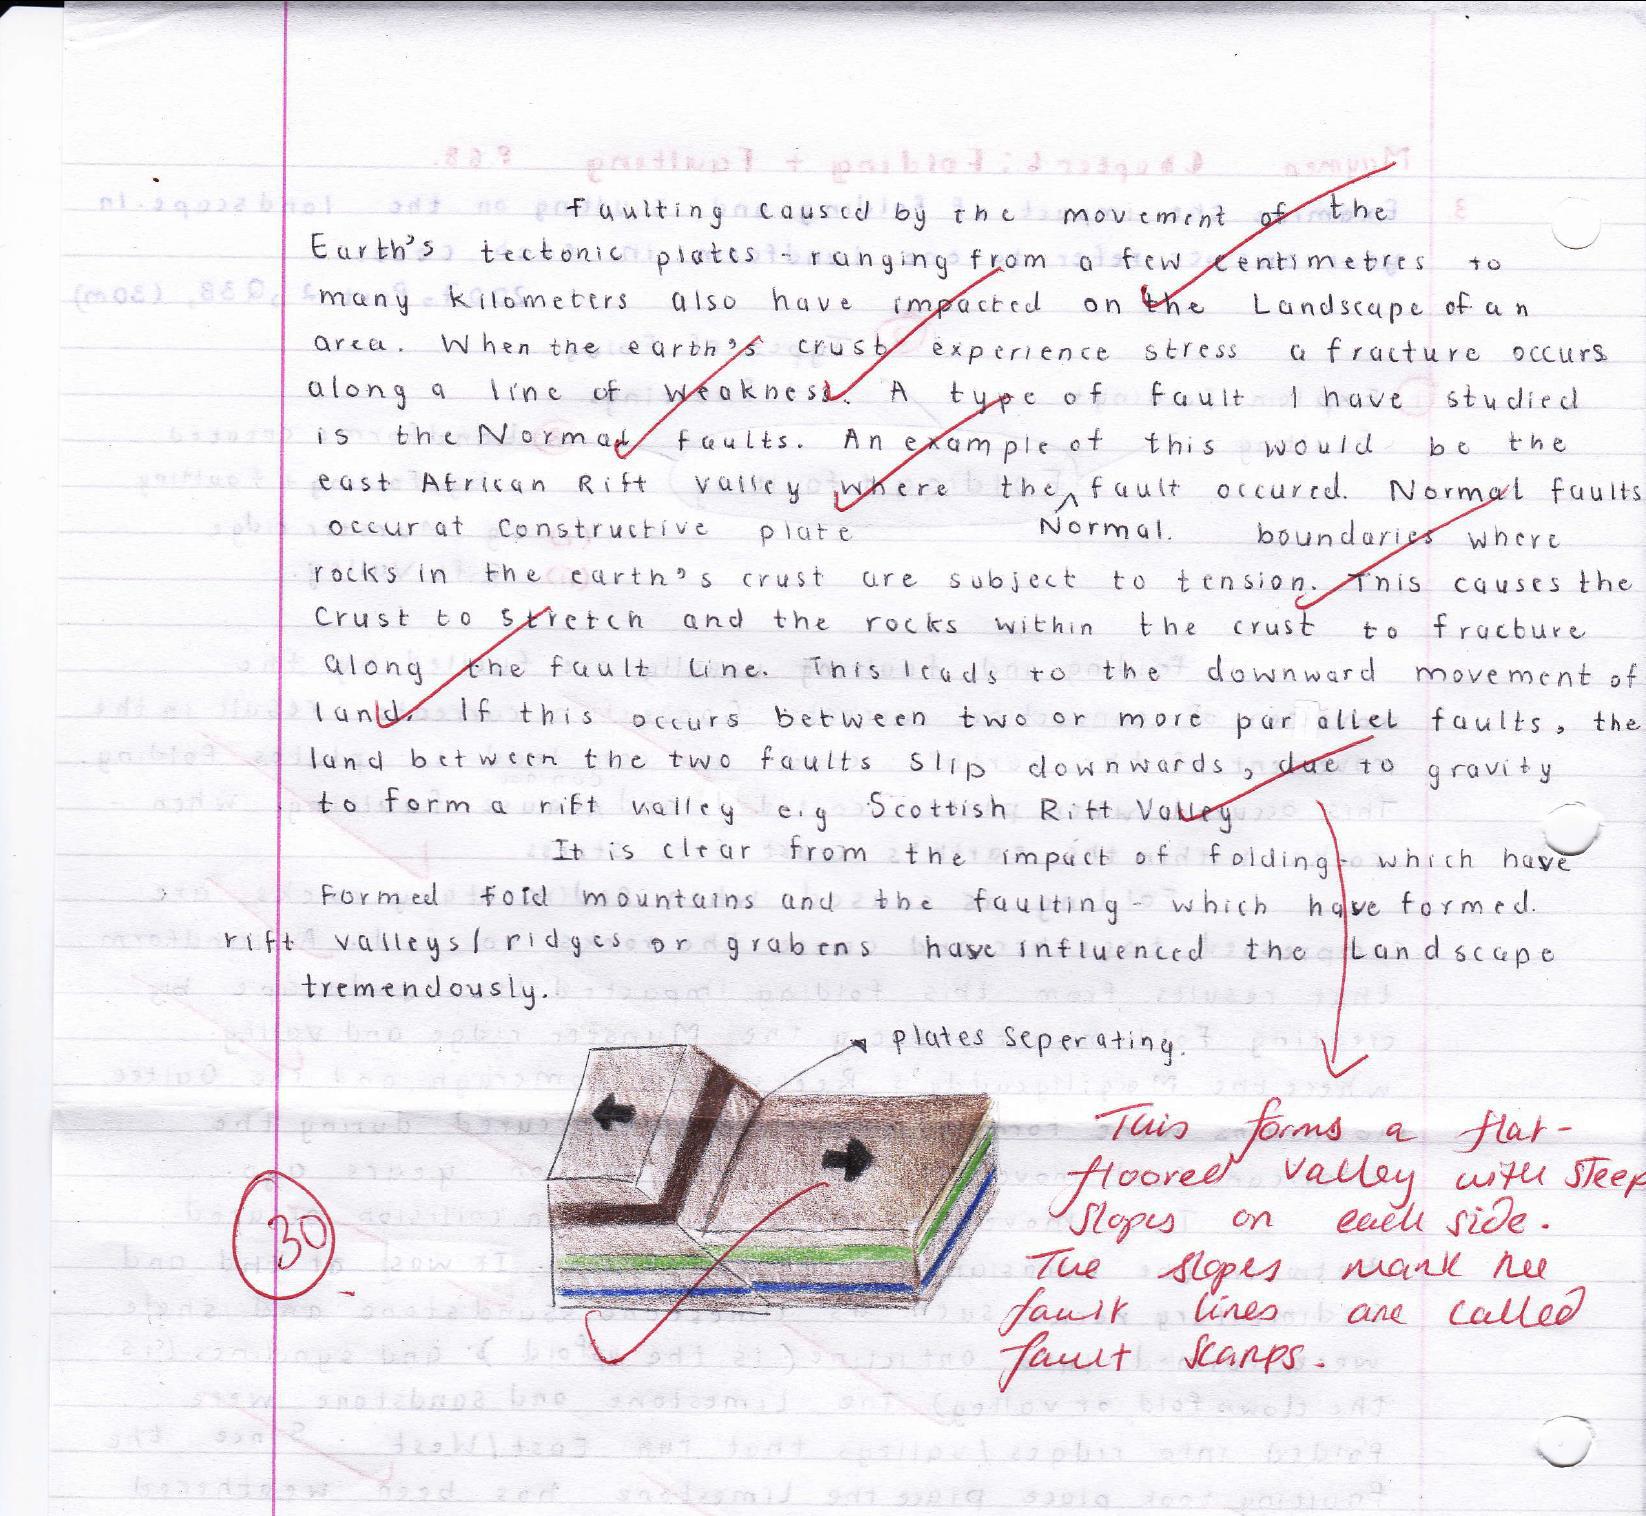 Faulting caused by the movement of the
Earth's tectonic plates - ranging from a few centimetres to
many kilometers also have impacted on the Landscape of an
area. When the earth's crust experience stress a fracture occurs
along a line of weakness. A type of fault I have studied
is the Normal faults. An example of this would be the
east African Rift valley where the ^ fault occured. Normal faults
occur at constructive plate Normal. boundaries where
rocks in the earth's crust are subject to tension. This causes the
Crust to stretch and the rocks within the crust to fracture
along the fault line. This leads to the downward movement of
land. If this occurs between two or more parallel faults, the
land between the two faults slip downwards, due to gravity
to form a rift valley e.g Scottish Rift Valley
It is clear from the impact of folding - which have
formed fold mountains and the faulting - which have formed.
rift valleys/ridges or grabens have influenced the Landscape
tremendously.
plates seperating.
30
This forms a flat-
floored valley with steep
slopes on each side.
The slopes mark the
fault lines are called
fault scarps.